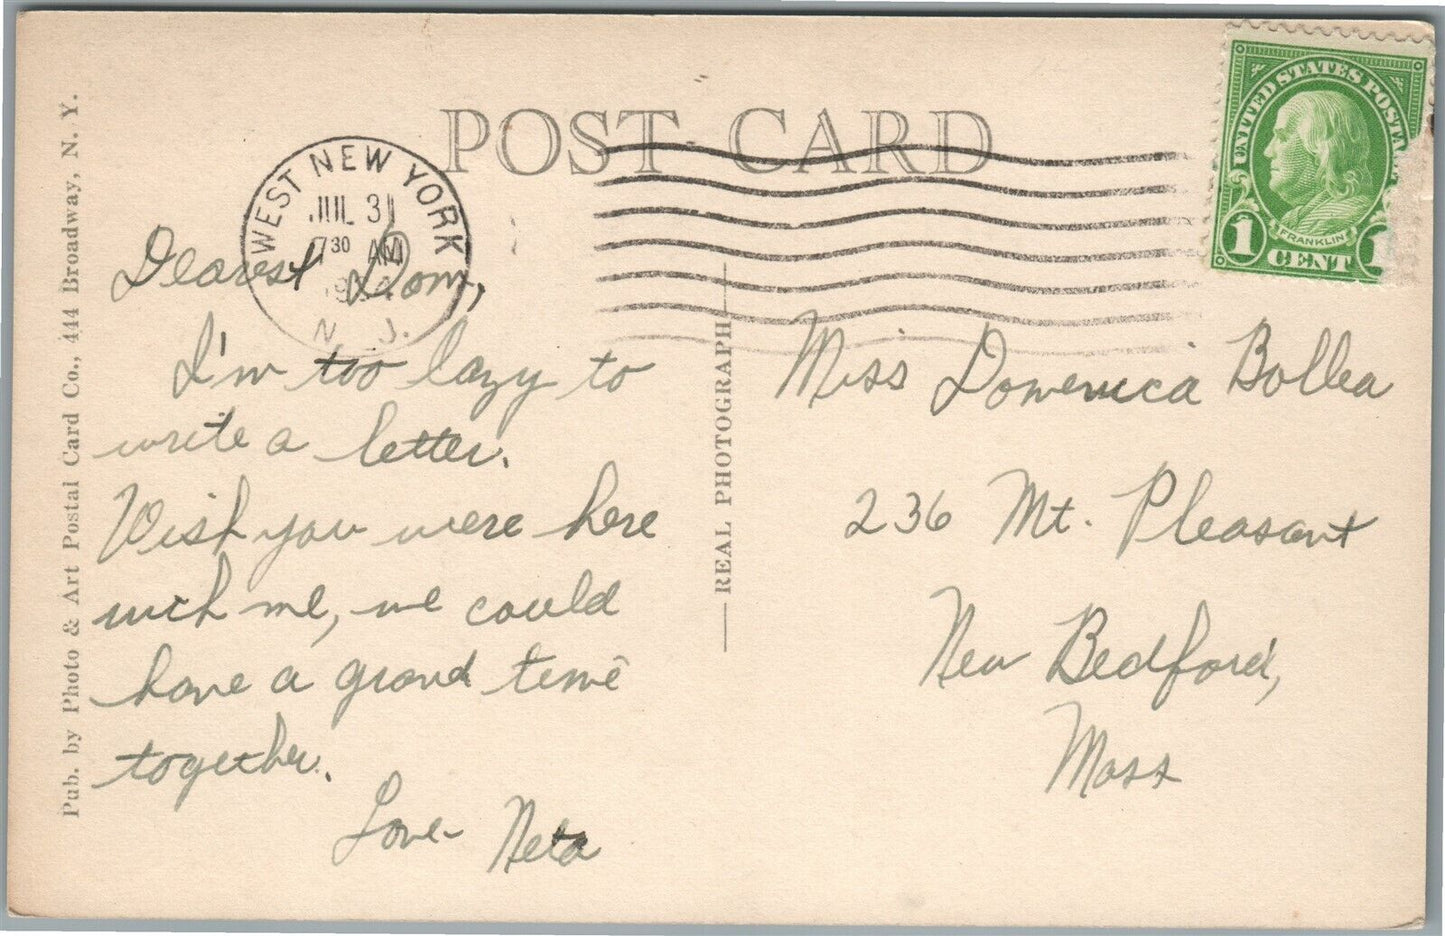 POST CARD
WEST NEW YORK
JUL 31
7 30 AM
N. J.
UNITED STATES POSTA
FRANKLIN
1 CENT 1
Dearest Dom,
I'm too lazy to
write a letter.
Wish you were here
with me, we could
have a grand time
together.
Love - Neta
Pub. by Photo & Art Postal Card Co., 444 Broadway, N. Y.
REAL PHOTOGRAPH
Miss Domenica Bollea
236 Mt. Pleasant
New Bedford,
Mass